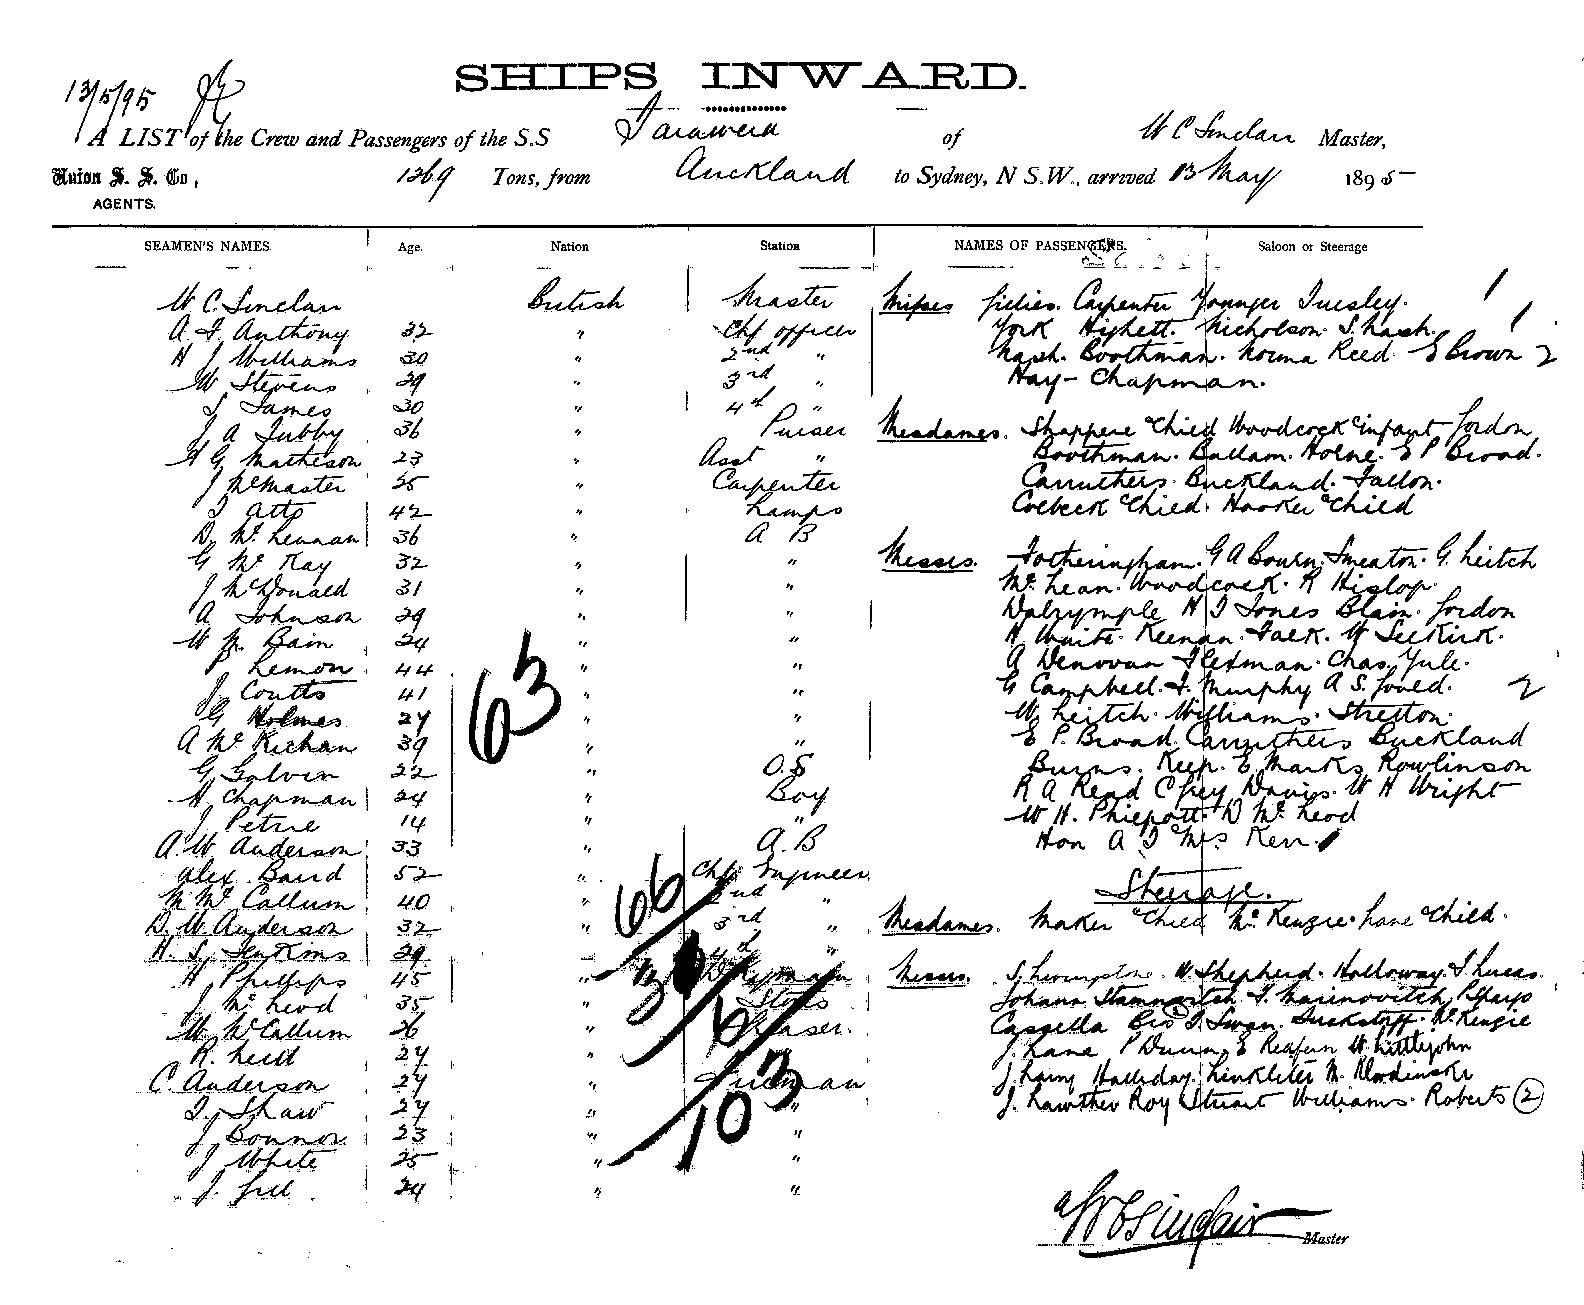 13/5/95
SHIPS INWARD.
A LIST of the Crew and Passengers of the S.S Tarawera of W C Sinclair Master,
Union S. S. Co, 1269 Tons, from Auckland to Sydney, N S.W., arrived 13 May 1895
AGENTS.
SEAMEN'S NAMES. Age. Nation Station NAMES OF PASSENGERS. Saloon or Steerage
W. C. Sinclair British Master Misses Gillies. Carpenter Younger Tuesley. 1
A. F. Anthony 32 " Chf officer York Highett. Nicholson. S. Nash. 1
H J Williams 30 " 2nd " Nash. Boothman. Norma Reed. E Brown 2
W Stevens 29 " 3rd " Hay - Chapman.
S James 30 " 4th "
J A Tubby 36 " Purser Mesdames. Shappere & Child Woodcock & infant Gordon
H G Matheson 23 " Asst " Boothman. Ballam. Horne. E P Broad.
J McMaster 25 " Carpenter Carruthers. Buckland. Fallon.
42 " Lamps Colbeck & Child. Hooker & Child
D. McLennan 36 " A B
G McKay 32 " " Messrs. Fotheringham. G A Bourn. Smeaton. G. Leitch
J McDonald 31 " " McLean. Woodcock. R Hislop.
A Johnson 29 " " Dalrymple H J Jones Blain. Gordon
W Bain 24 " " H Waite. Keenan. Falk. W Selkirk.
P Lemon 44 " " A Denovan Chas. Yule.
J. Coutts 41 " " G Campbell. F. Murphy A S. 2
G Holmes 27 " " W. Leitch. Williams. Stretton.
A McKichan 39 " " E P. Broad. Carruthers Buckland
G Galvin 22 " O.S Burns. Keep. E. Marks Rowlinson
H Chapman 24 " Boy R A Read Davis. W H Wright
J Petrie 14 " " W H. Philpott. D McLeod
A. W. Anderson 33 " A. B Hon A J & Mrs Kerr.
Alex Baird 52 " Chf Engineer
M McCallum 40 " 2nd " Steerage.
D. W Anderson 32 " 3rd " Mesdames. Maker & Child McKenzie. Lane & Child.
H. S. Jenkins 29 " 4th "
H Phillips 45 " Messrs. Livingstone. W. Shepherd. Holloway. T. Lucas
J McLeod 35 " Stores Johann T. Marinovitch.
W McCallum 26 " Greaser. Cassella Bros J. Swan. McKenzie
R. Reid 27 " " J. Lane P Dunn, E W Littlejohn
C. Anderson 27 " Fireman J Halliday. Linkleter M.
J. Shaw 27 " " J. Lawther Roy Stuart Williams. Roberts 2
J Bonnor 23 " "
J White 25 " "
J. Gill 24 " "
63
66
6
103
W C Sinclair
Master